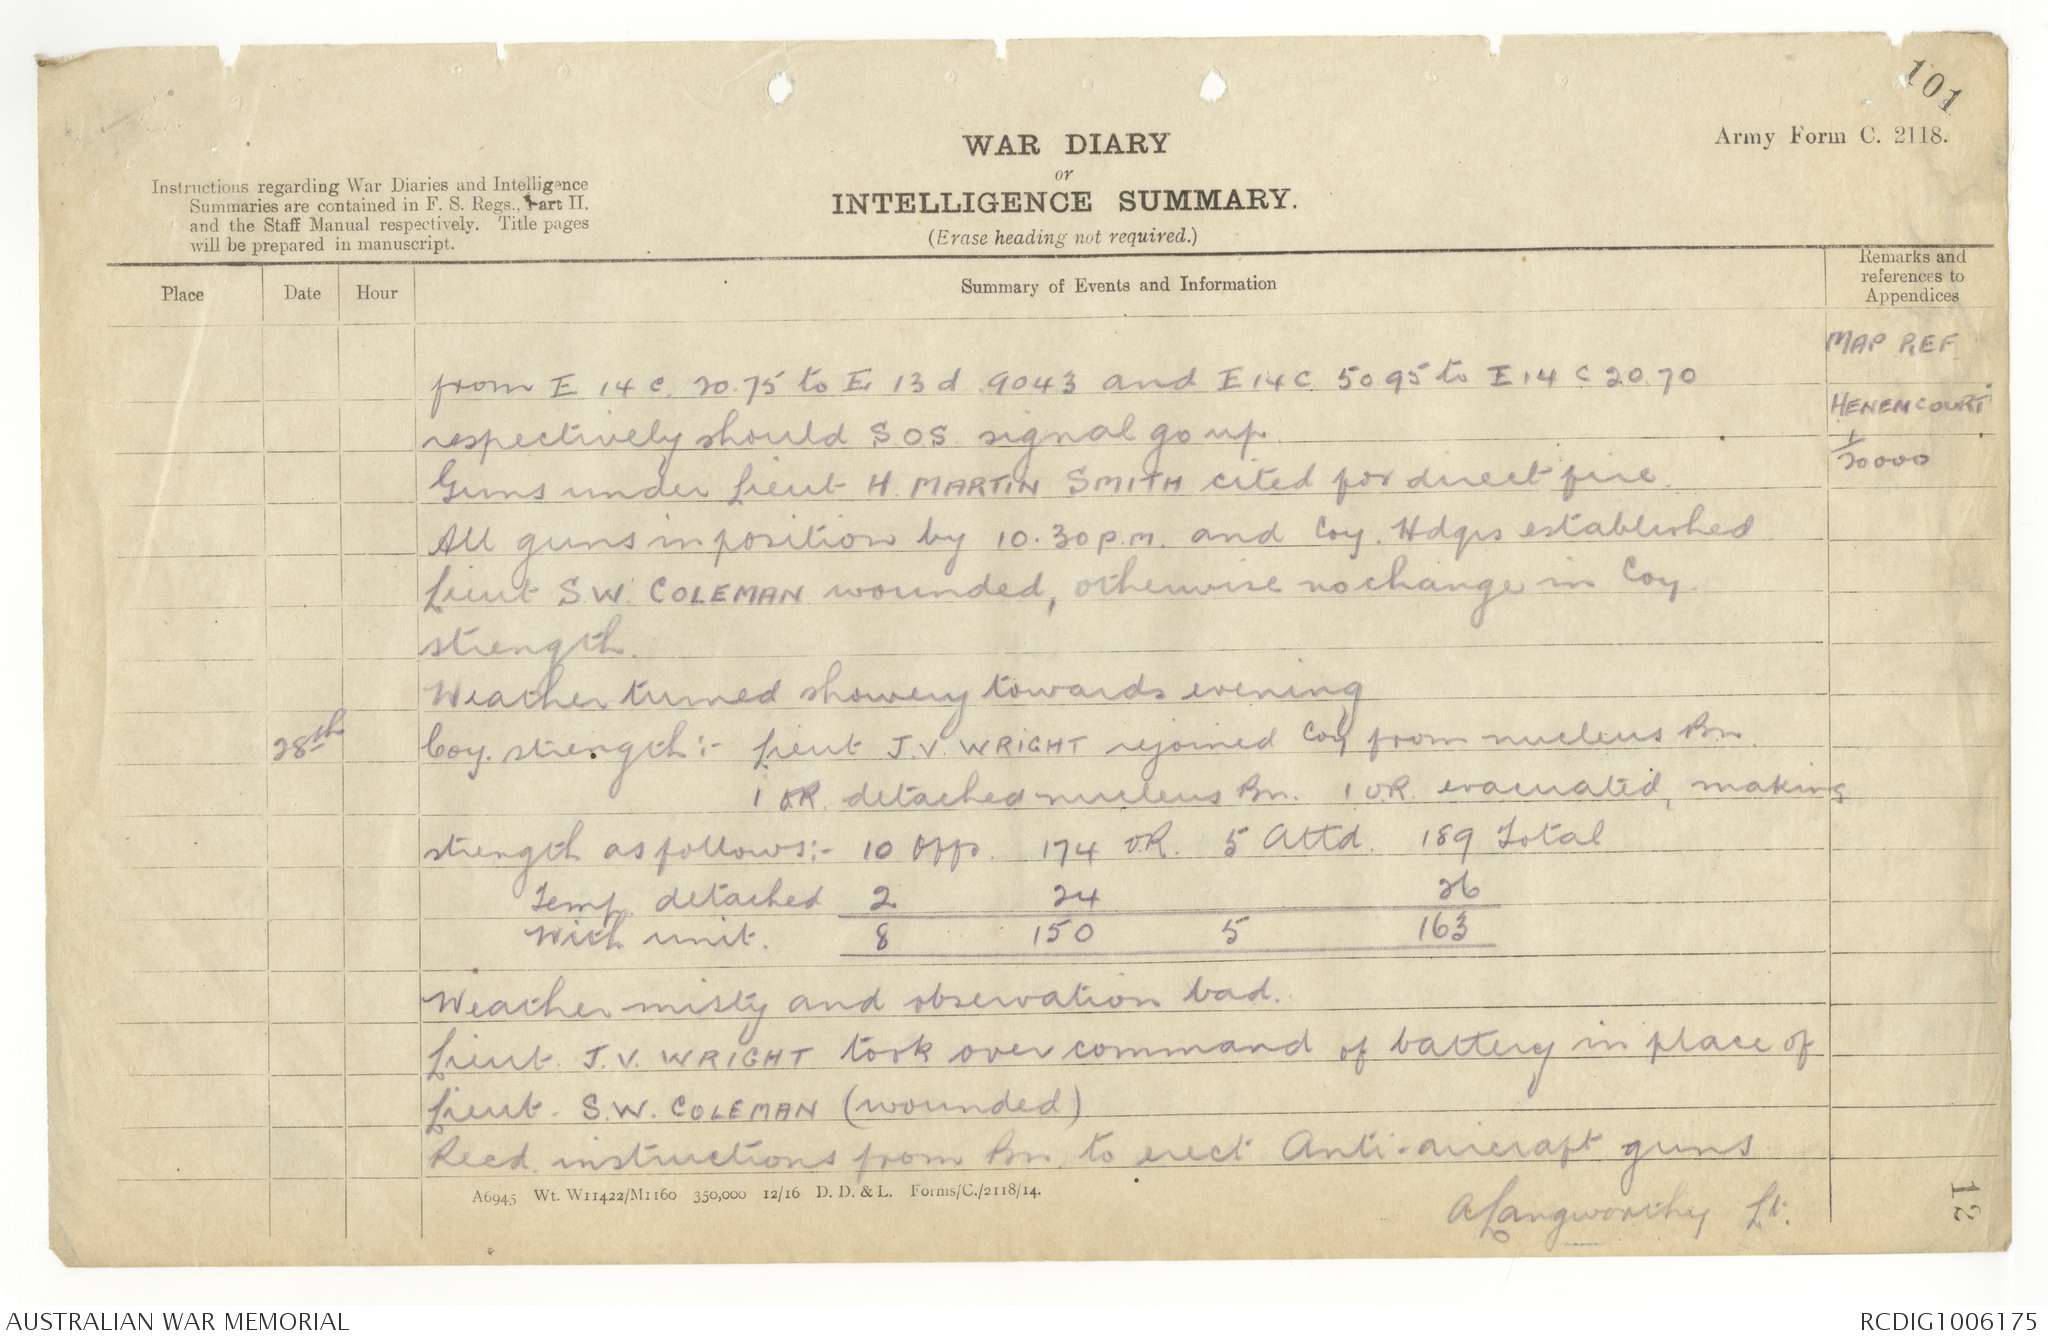 101
Army Form C. 2118.
WAR DIARY
or
INTELLIGENCE SUMMARY.
(Erase heading not required.)
Instructions regarding War Diaries and Intelligence
Summaries are contained in F. S. Regs., Part II.
and the Staff Manual respectively. Title pages
will be prepared in manuscript.
Place Date Hour Summary of Events and Information Remarks and references to Appendices
MAP REF
HENENCOURT
1/20000
from E 14 c. 20.75 to E 13 d .9043 and E 14 C. 50 95 to E 14 C 20.70
respectively should S O S signal go up.
Guns under Lieut H. MARTIN SMITH cited for direct fire.
All guns in position by 10.30 p.m. and Coy. Hdqrs established
Lieut S.W. COLEMAN wounded, otherwise no change in Coy.
strength.
Weather turned showery towards evening
28th Coy. strength:- Lieut J.V. WRIGHT rejoined Coy from nucleus Bn.
1 OR. detached nucleus Bn. 1 OR. evacuated, making
strength as follows:- 10 Offs. 174 OR. 5 Attd. 189 Total
Temp. detached 2 24 26
With unit. 8 150 5 163
Weather misty and observation bad.
Lieut. J.V. WRIGHT took over command of battery in place of
Lieut. S.W. COLEMAN (wounded)
Recd. instructions from Bn. to erect Anti-aircraft guns
A6945 Wt. W11422/M1160 350,000 12/16 D. D. & L. Forms/C./2118/14.
A Langworthy Lt.
12
AUSTRALIAN WAR MEMORIAL
RCDIG1006175